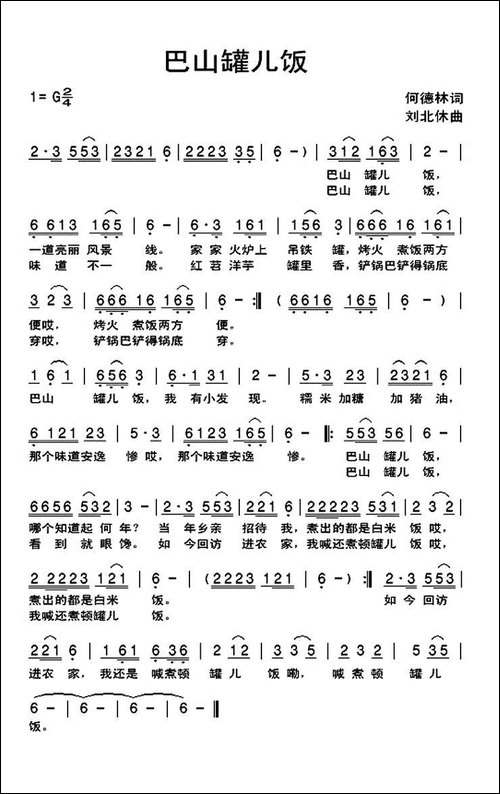 巴山罐儿饭
1= G 2/4
何德林词
刘北休曲
2·3 553 | 2321 6 | 2223 35 | 6 -) | 312 163 | 2 - |
巴山 罐儿 饭,
巴山 罐儿 饭,
6 613 165 | 6 - | 6·3 161 | 156 3 | 666 16 161 |
一道亮丽 风景 线。 家 家 火炉上 吊铁 罐,烤火 煮饭两方
味 道 不一 般。 红 苕 洋芋 罐里 香,铲锅巴铲得锅底
3 2 3 | 666 16 165 | 6 - :‖ (6616 165 | 6 -) |
便哎, 烤火 煮饭两方 便。
穿哎, 铲锅巴铲得锅底 穿。
1 6 1 | 656 3 | 6·1 31 | 2 - | 2·3 553 | 2321 6 |
巴山 罐儿 饭,我 有小发 现。 糯 米 加糖 加 猪 油,
6 121 23 | 5·3 | 6123 165 | 6 - ‖: 553 56 | 6 - |
那个味道安逸 惨哎,那个味道安逸 惨。 巴山 罐儿 饭,
巴山 罐儿 饭,
6656 532 | 3 - | 2·3 553 | 221 6 | 22223 531 | 2 3 2 |
哪个知道起 何年? 当 年乡亲 招待 我,煮出的都是白米 饭哎,
看 到 就 眼 馋。 如 今回访 进农 家,我喊还煮顿罐儿 饭哎,
2 2223 121 | 6 - | (2223 121 | 6 -) :‖ 2·3 553 |
煮出的都是白米 饭。 如 今 回访
我喊还煮顿罐儿 饭。
221 6 | 161 61 | 6·3 | 2 12 | 3 3 5 | 2 21 2 |
进农 家,我还是 喊煮顿 罐儿 饭嘞,喊煮顿 罐儿
6 - | 6 - | 6 - | 6 - ‖
饭。